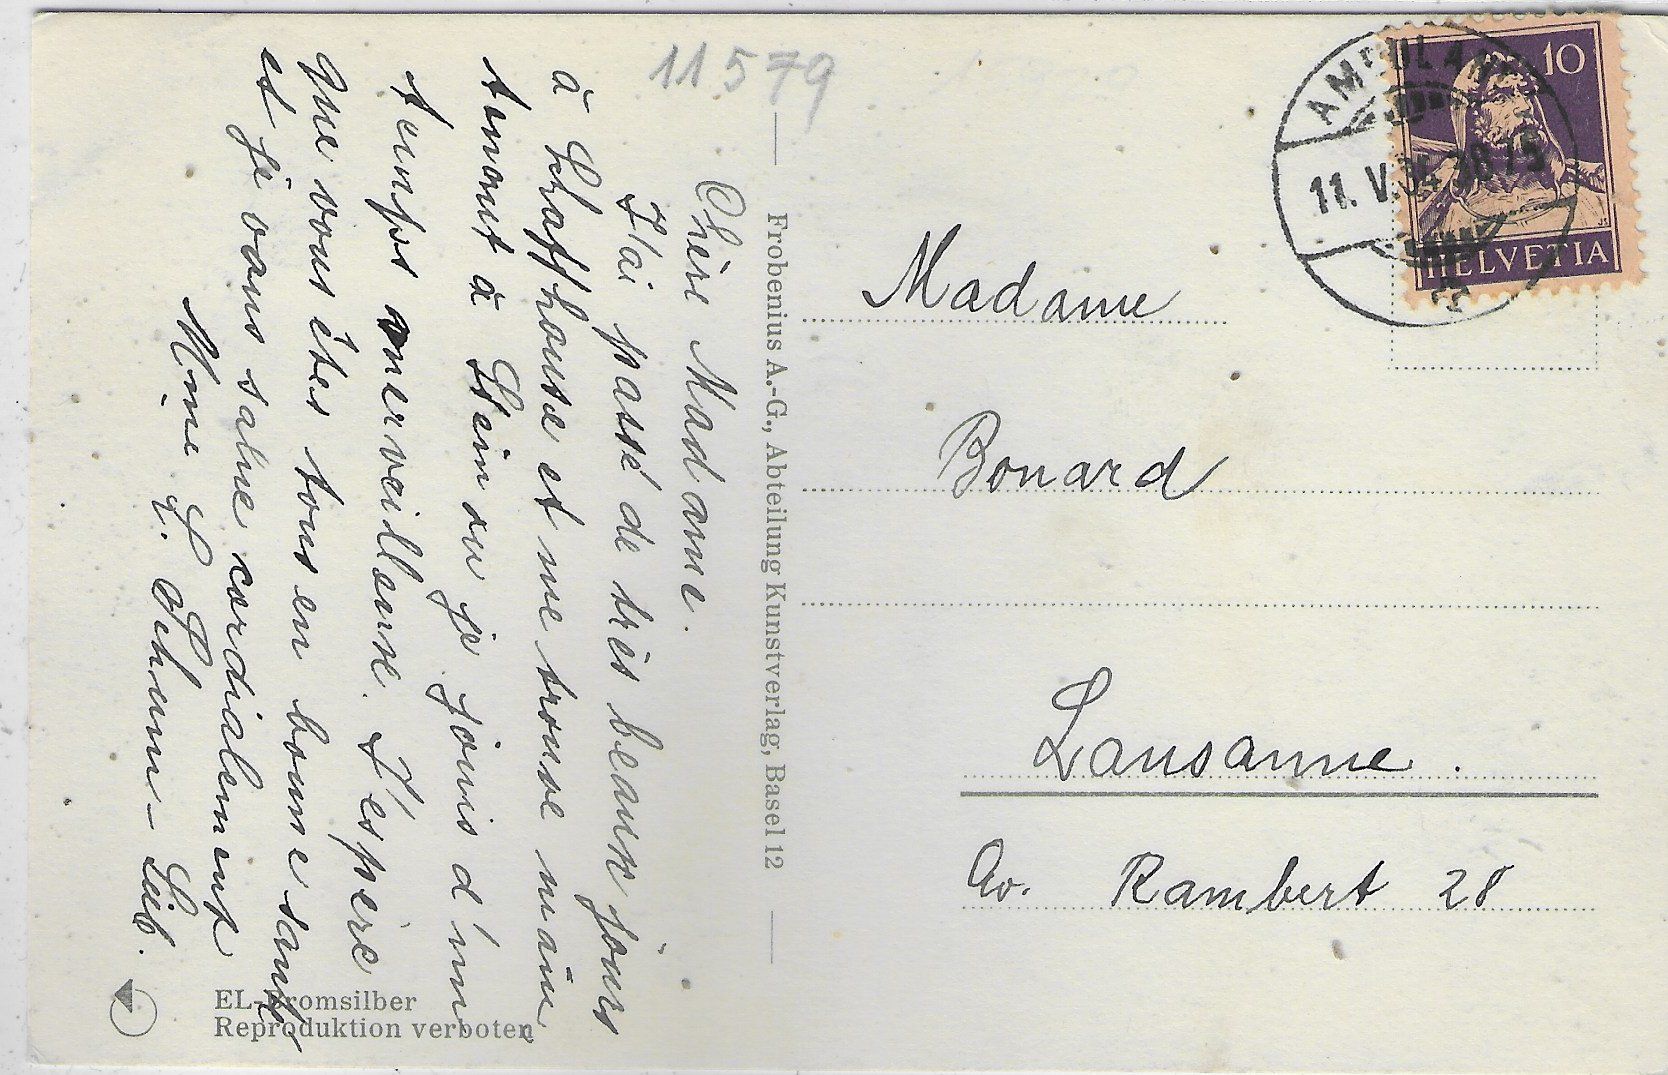 11579
Chère Madame.
J'ai passé de très beaux jours
à Schaffhouse et me trouve main
tenant à Stein ou je jouis d'un
temps merveilleuse. J'espère
que vous êtes tous en bonne santé
et je vous salue cordialement
Mme L. Schum-Leib.
EL-Bromsilber
Reproduktion verboten
Frobenius A.-G., Abteilung Kunstverlag, Basel 12
10
HELVETIA
AMBULANT
11. V. 34
Madame
Bonard
Lausanne.
Av. Rambert 28